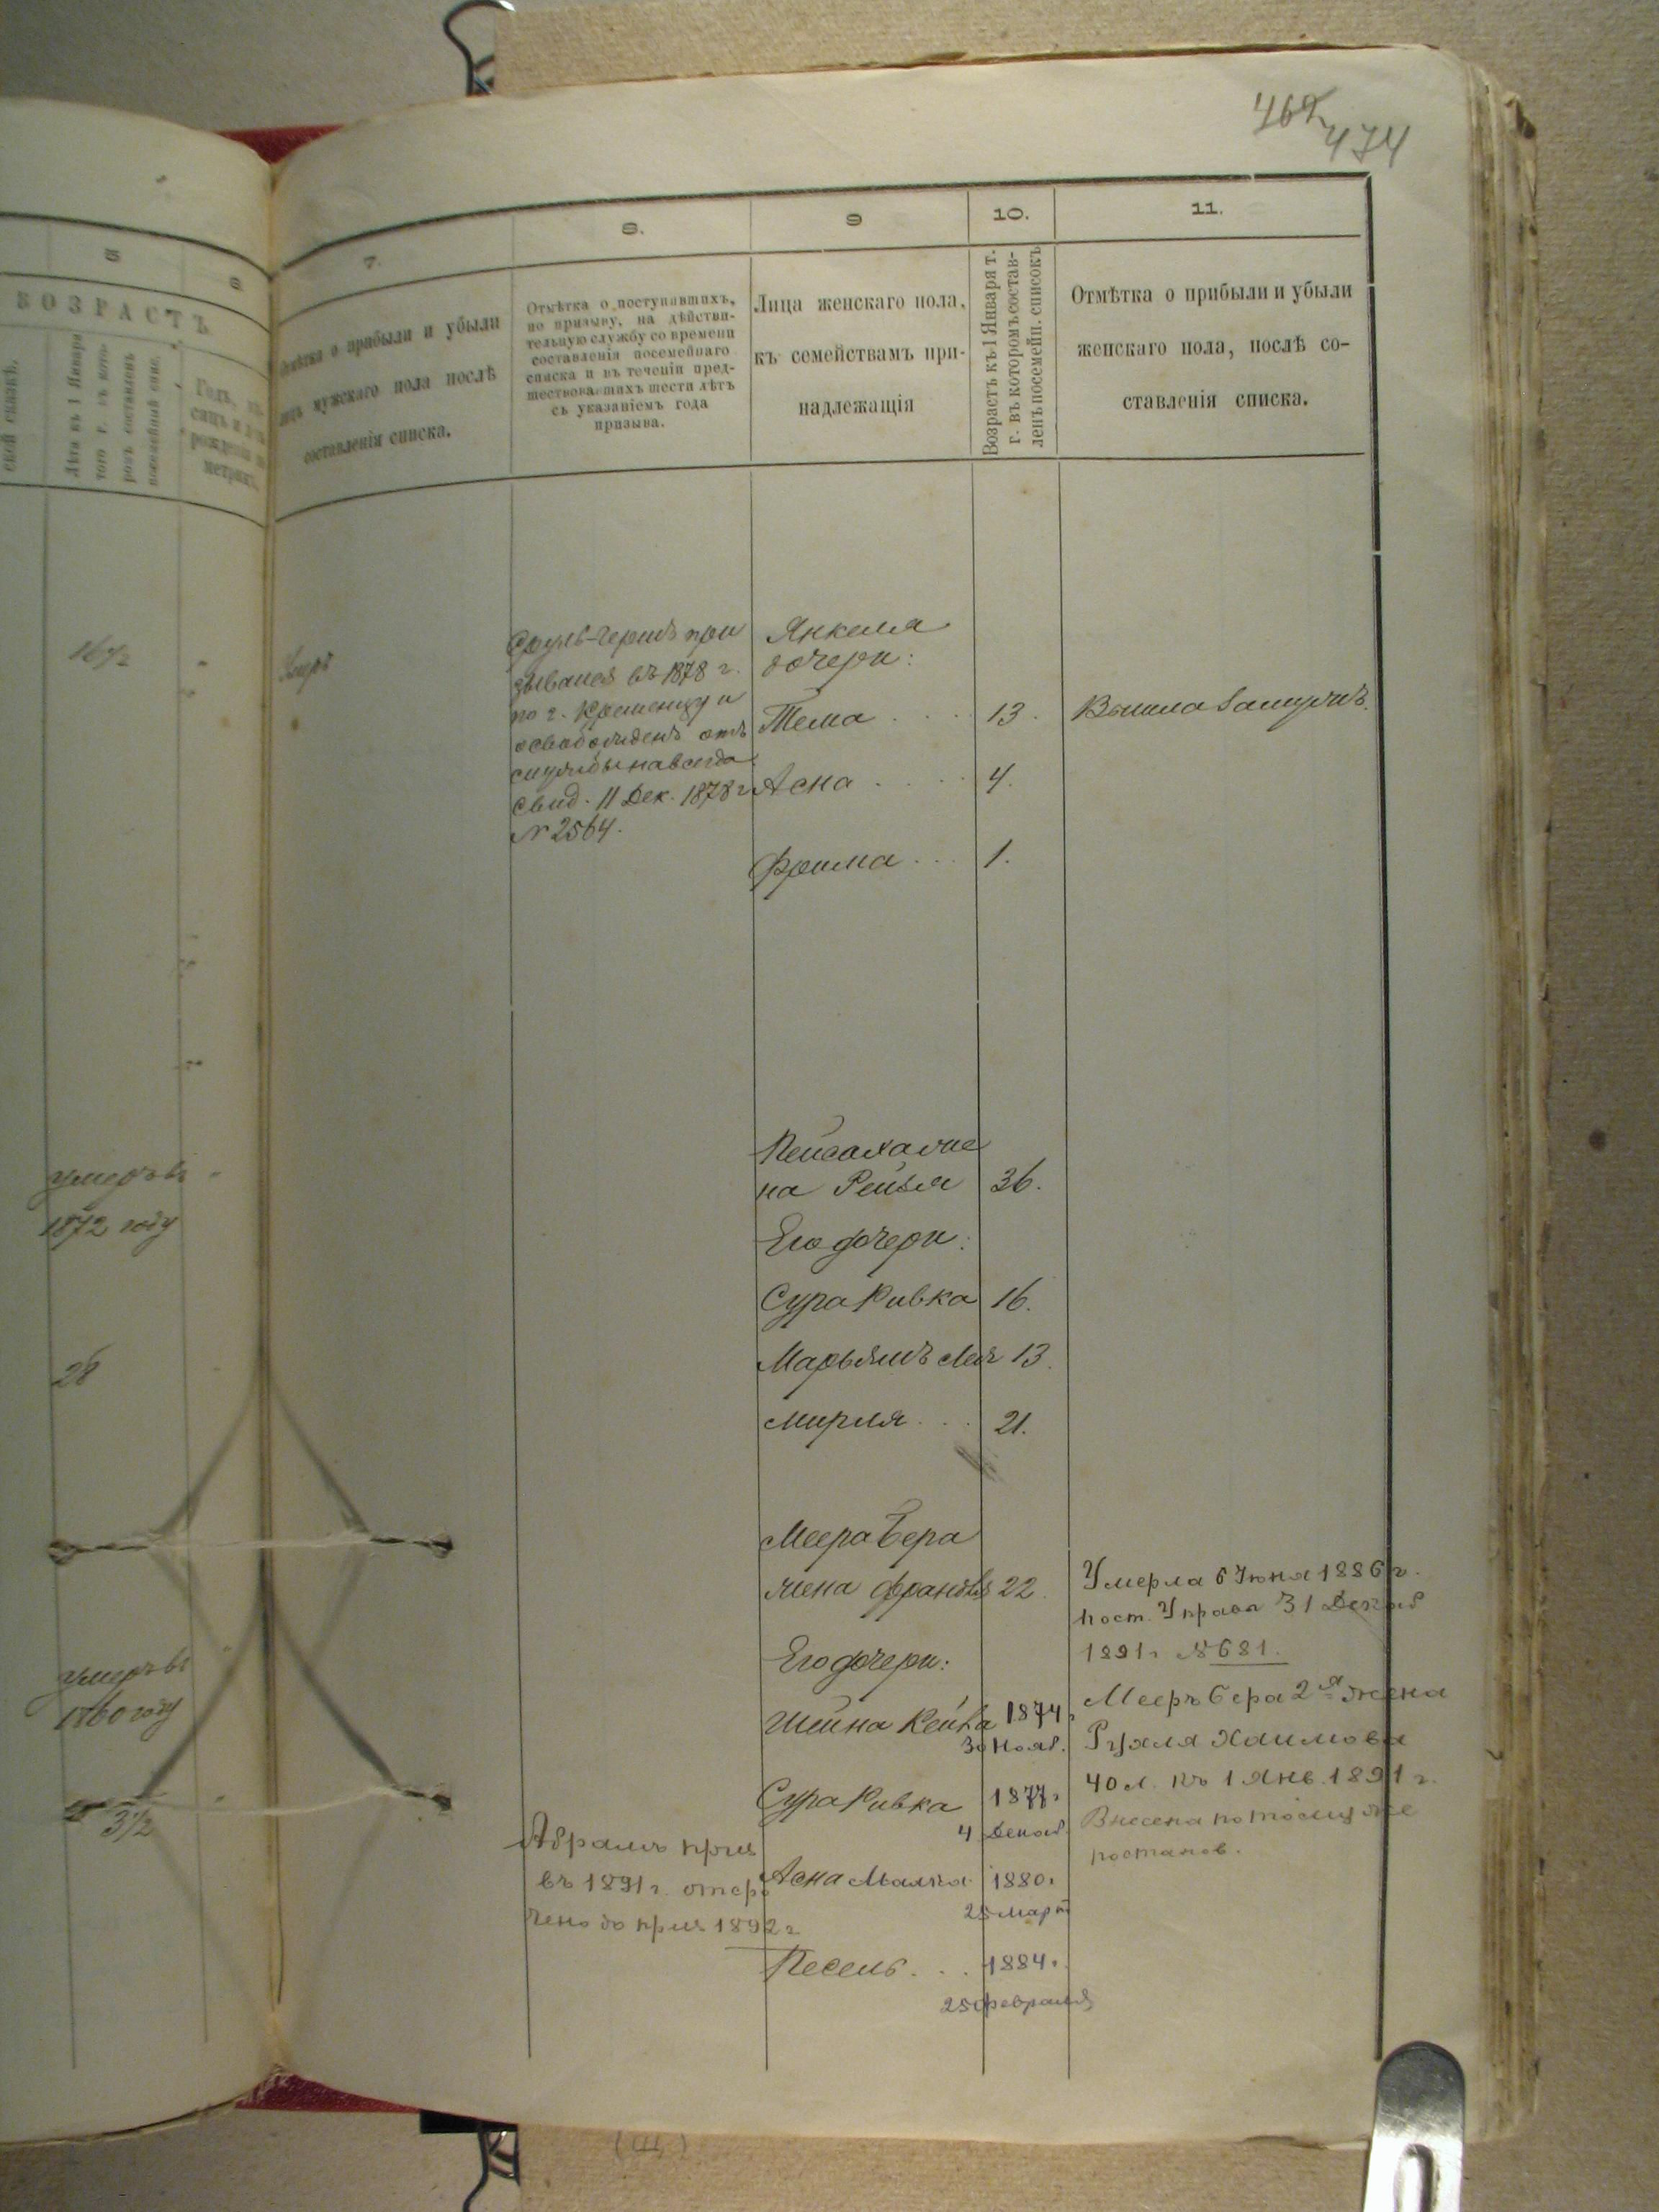 469
474
5
6
ВОЗРАСТЪ
Лѣта къ 1 Января
того г. въ кото-
ромъ составленъ
посемейный спис.
Годъ, мѣ-
сяцъ и день
рожденія по
метрик.
16 1/2
умеръ въ
1872 году
28
умеръ въ
1860 году
3 1/2
7.
Отмѣтка о прибыли и убыли
лицъ мужскаго пола послѣ
составленія списка.
Умеръ
8.
Отмѣтка о поступившихъ,
по призыву, на дѣйстви-
тельную службу со времени
составленія посемейнаго
списка и въ теченіи пред-
шествовавшихъ шести лѣтъ
съ указаніемъ года
призыва.
Сруль-Гершъ при
зывался въ 1878 г.
по г. Кременцу и
освобожденъ отъ
службы навсегда
свид. 11 Дек. 1878 г
№ 2564.
Абрамъ приз
въ 1891 г. отср
чено до приз 1892 г
9
Лица женскаго пола,
къ семействамъ при-
надлежащія
10.
Возрастъ къ 1 Января т.
г. въ которомъ состав-
ленъ посемейн. списокъ
11.
Отмѣтка о прибыли и убыли
женскаго пола, послѣ со-
ставленія списка.
Янкеля
дочери:
Тема . . . 13. Вышла замужъ.
Асна . . . 4.
Фрима . . . 1.
Пейсаха же
на Рейзя 36.
Его дочери:
Сура Ривка 16.
Марьямъ Лея 13.
Мирля . . . 21.
Меера Бера
жена 22.
Его дочери:
Шейна Кейла 1874 г
30 Нояб.
Сура Ривка 1877 г
4 Декаб.
Асна Малка 1880 г
25 Март
Песель . . . 1884 г
25 февраля
Умерла 6 Июня 1886 г.
пост. Управы 31 Декаб
1891 г № 681.
Мееръ Бера 2я жена
Рухля Хаимова
40 л. къ 1 Янв. 1891 г.
Внесена по тому же
постанов.